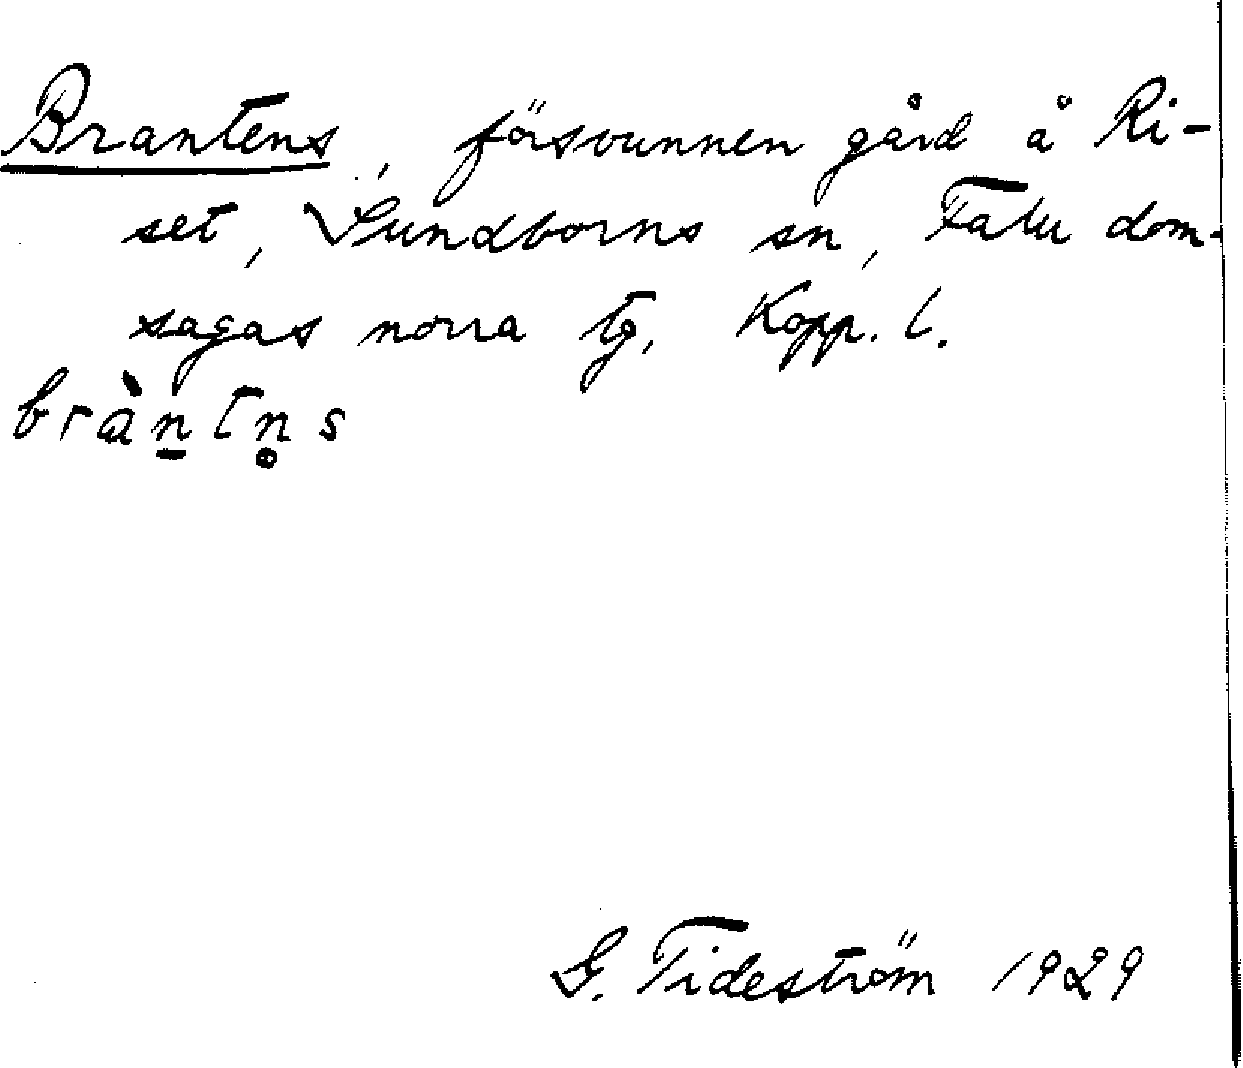 Brantens, försvunnen gård å Ri-
set, Sundborns sn, Falu dom-
sagas norra tg, Kopp. l.
bràn̠tn̥s
G. Tideström 1929